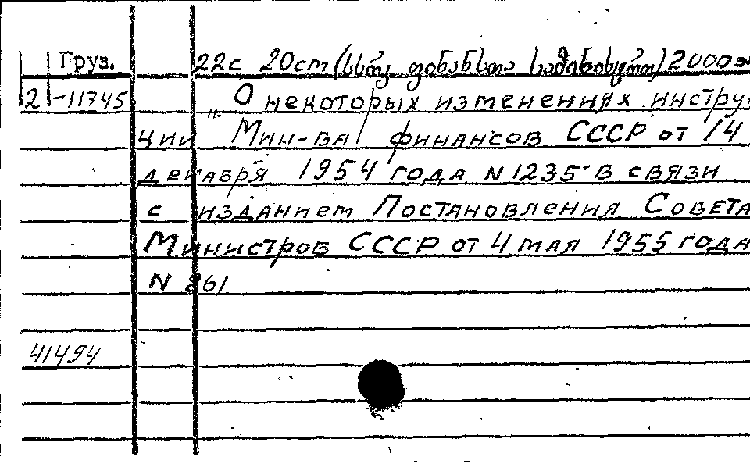 Груз. 22с 20см (სსრკ ფინანსთა სამინისტრო) 2000 э
2-11745 „О некоторых изменениях инстру
ции Мин-ва финансов СССР от 14
декабря 1954 года N 1235 в связи
с изданием Постановления Совета
Министров СССР от 4 мая 1955 года
N 861
41494